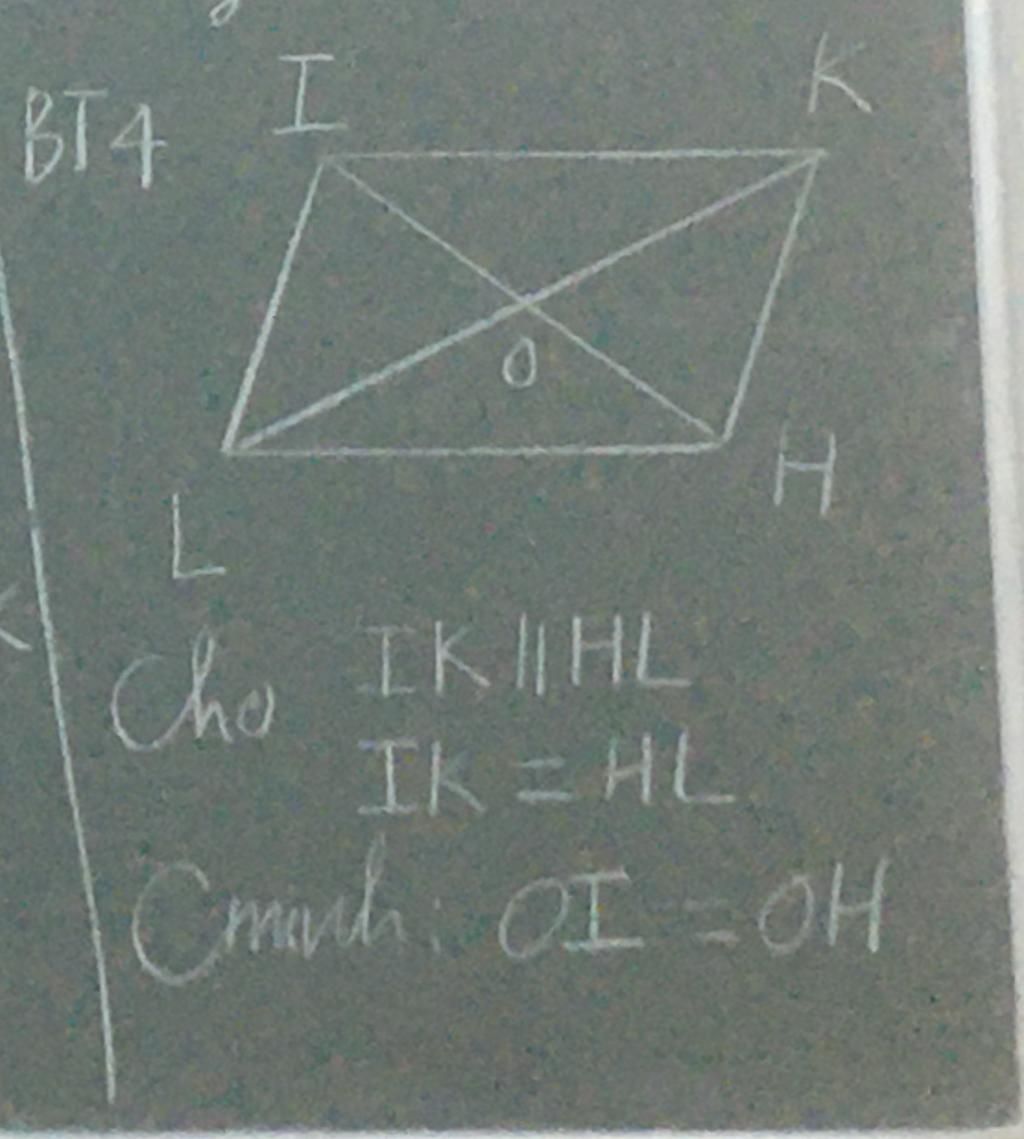 BT4
I
K
O
L
H
Cho IK || HL
IK = HL
Cminh: OI = OH